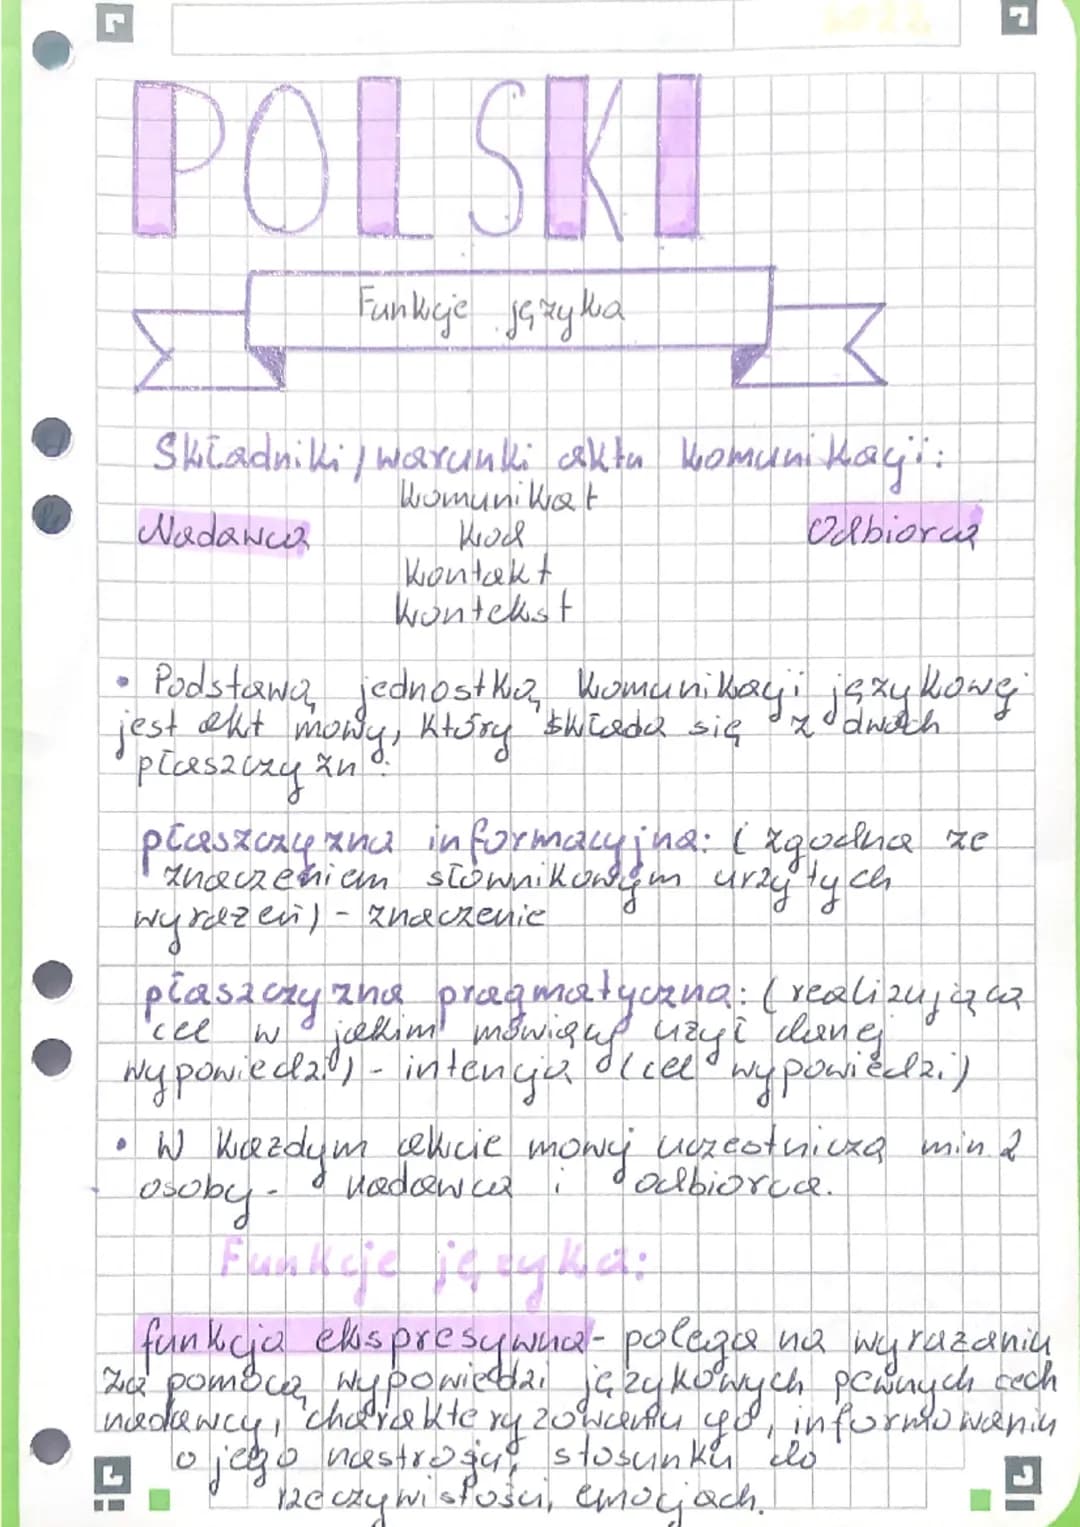 POLSKI
Funkcje języka
Składniki / warunki aktu komunikacji:
komunikat
Nadawca kod Odbiorca
kontakt
kontekst
• Podstawą jednostką komunikacji językowej
jest akt mowy, który składa się z dwóch
płaszczyzn:
płaszczyzna informacyjna: (zgodna ze
znaczeniem słownikowym urzytych
wyrażeń) - znaczenie
płaszczyzna pragmatyczna: (realizująca
cel w jakim mówiący użył danej
wypowiedzi) - intencja (cel wypowiedzi)
• W każdym akcie mowy uczestniczą min 2
osoby - nadawca i odbiorca.
Funkcje języka:
funkcja ekspresywna - polega na wyrażaniu
za pomocą wypowiedzi językowych pewnych cech
nadawcy, charakteryzowaniu go, informowaniu
o jego nastroju, stosunku do
rzeczywistości, emocjach.